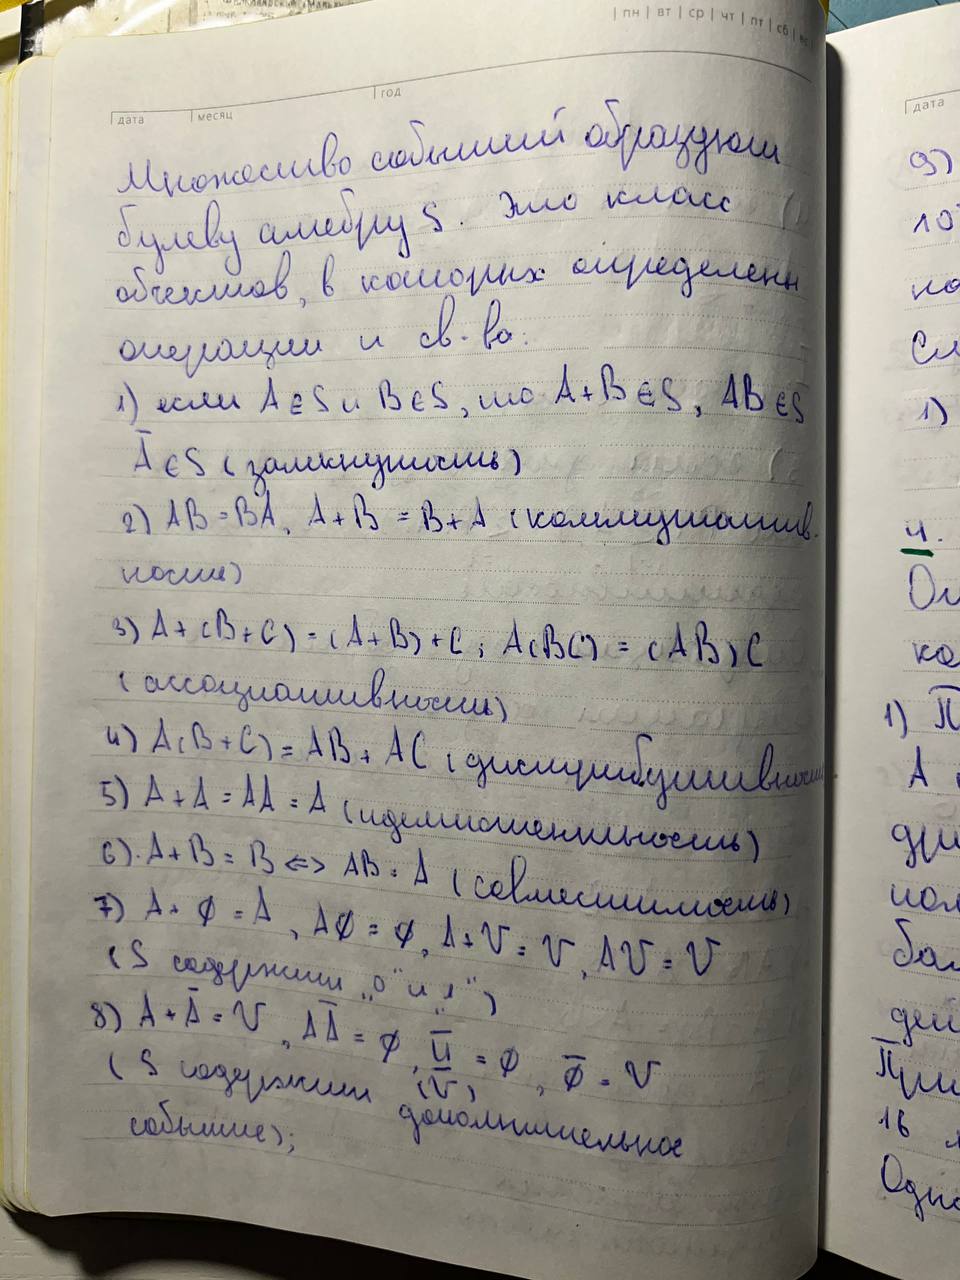 | пн | вт | ср | чт | пт | сб | вс
дата месяц год
Множество событий образуют
булеву алгебру S. Это класс
объектов, в которых определены
операции и св-ва:
1) если A∈S и B∈S, то A+B∈S, AB∈S
Ā∈S (замкнутость)
2) AB=BA, A+B=B+A (коммутатив-
ность)
3) A+(B+C)=(A+B)+C; A(BC)=(AB)C
(ассоциативность)
4) A(B+C)=AB+AC (дистрибутивность
5) A+A=AA=A (идемпотентность)
6) A+B=B <=> AB=A (совместимость)
7) A+∅=A, A∅=∅, A+V=V, AV=V
(S содержит „0" и „1")
8) A+Ā=V, AĀ=∅, U̅=∅, ∅̅=V
(V̅)
(S содержит дополнительное
событие);
дата
9)
10
на
Сл
1)
4.
Оп
ка
1) П
A
дру
пол
бол
дей
При
16
Одно